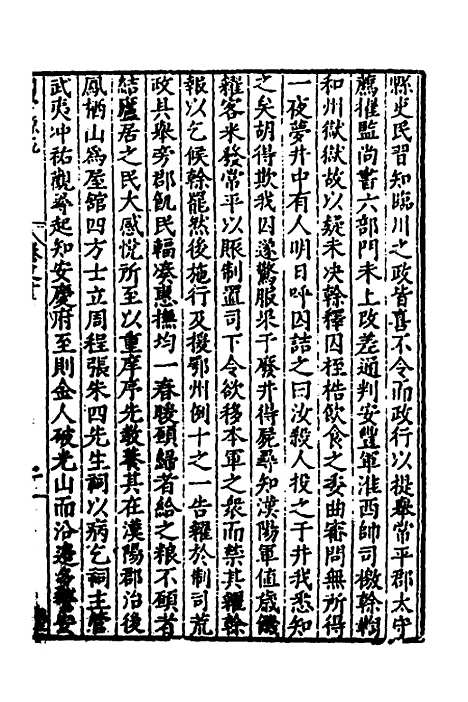 縣吏民習知臨川之政皆喜不令而政行以提舉常平郡太守
薦擢監尚書六部門未上改差通判安豐軍淮西帥司檄榦鞫
和州獄獄故以疑未决榦釋囚桎梏飲食之委曲審問無所得
一夜夢井中有人明日呼囚詰之曰汝殺人投之于井我悉知
之矣胡得欺我囚遂驚服果于廢井得屍尋知漢陽軍値歲饑
糴客米發常平以賑制置司下令欲移本軍之粟而禁其糴榦
報以乞候榦罷然後施行及援鄂州例十之一告糴於制司荒
政具舉旁郡飢民輻凑惠撫均一春暖願歸者給之粮不願者
結廬居之民大感悅所至以重庠序先敎養其在漢陽郡治後
鳳栖山爲屋館四方士立周程張朱四先生祠以病乞祠主管
武夷冲祐觀尋起知安慶府至則金人破光山而沿邊多警安